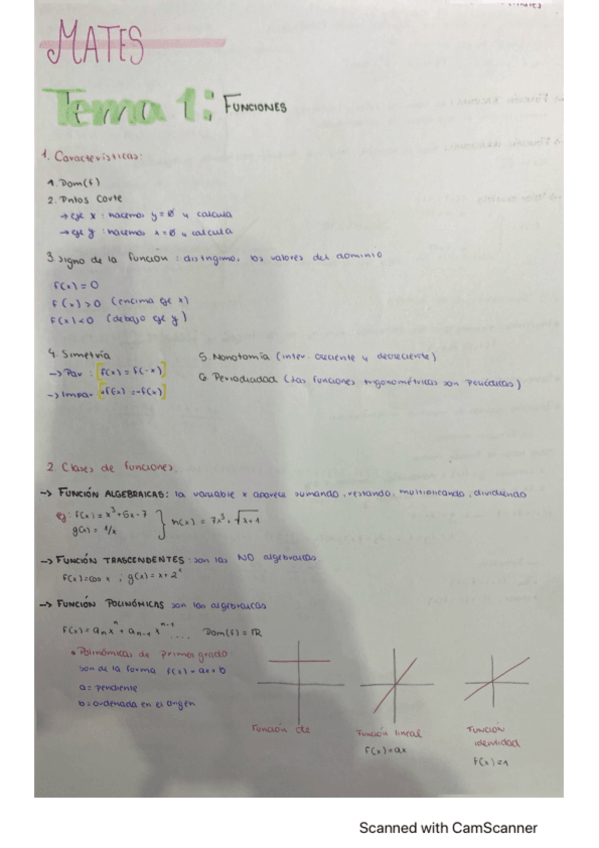 MATES
Tema 1: FUNCIONES
1. Características:
1. Dom(f)
2. Pntos Corte
→ eje x : hacemos y = 0 y calcula
→ eje y : hacemos x = 0 y calcula
3. Signo de la función : distinguimo, los valores del dominio
f(x) = 0
f(x) > 0 (encima eje x)
f(x) < 0 (debajo eje y)
4. Simetría
→ Par : [f(x) = f(-x)]
→ Impar
5. Monotomía (inter. creciente y decreciente)
6. Periodicidad (las funciones trigonométricas son periódicas)
2. Clases de funciones.
→ FUNCIÓN ALGEBRAICAS: la variable x aparece sumando, restando, multiplicando, dividiendo
ej: f(x) = x³+5x-7
g(x) = 1/x
} h(x) = 7x³ · √x+1
→ FUNCIÓN TRASCENDENTES : son las NO algebraicas
f(x) = cos x ; g(x) = x+2ˣ
→ FUNCIÓN POLINÓMICAS son las algebraicas
f(x) = aₙxⁿ + aₙ₋₁xⁿ⁻¹ .... Dom(f) = ℝ
• Polinómicas de primer grado:
son de la forma f(x) = ax + b
a = pendiente
b = ordenada en el origen
Función cte
Función lineal
f(x) = ax
Función identidad
Scanned with CamScanner